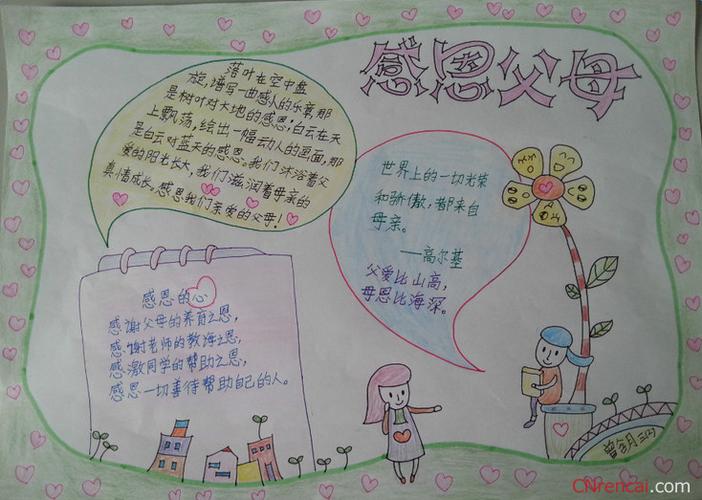 感恩父母
落叶在空中盘
旋,谱写一曲感人的乐章,那
是树叶对大地的感恩;白云在天
上飘荡,绘出一幅动人的画面,那
是白云对蓝天的感恩。我们沐浴着父
爱的阳光长大,我们滋润着母亲的
真情成长,感恩我们亲爱的父母!
世界上的一切光荣
和骄傲,都来自
母亲。
——高尔基
父爱比山高,
母恩比海深。
感恩的心
感谢父母的养育之恩,
感谢老师的教海之恩,
感激同学的帮助之恩,
感恩一切善待帮助自己的人。
CNrencai.com